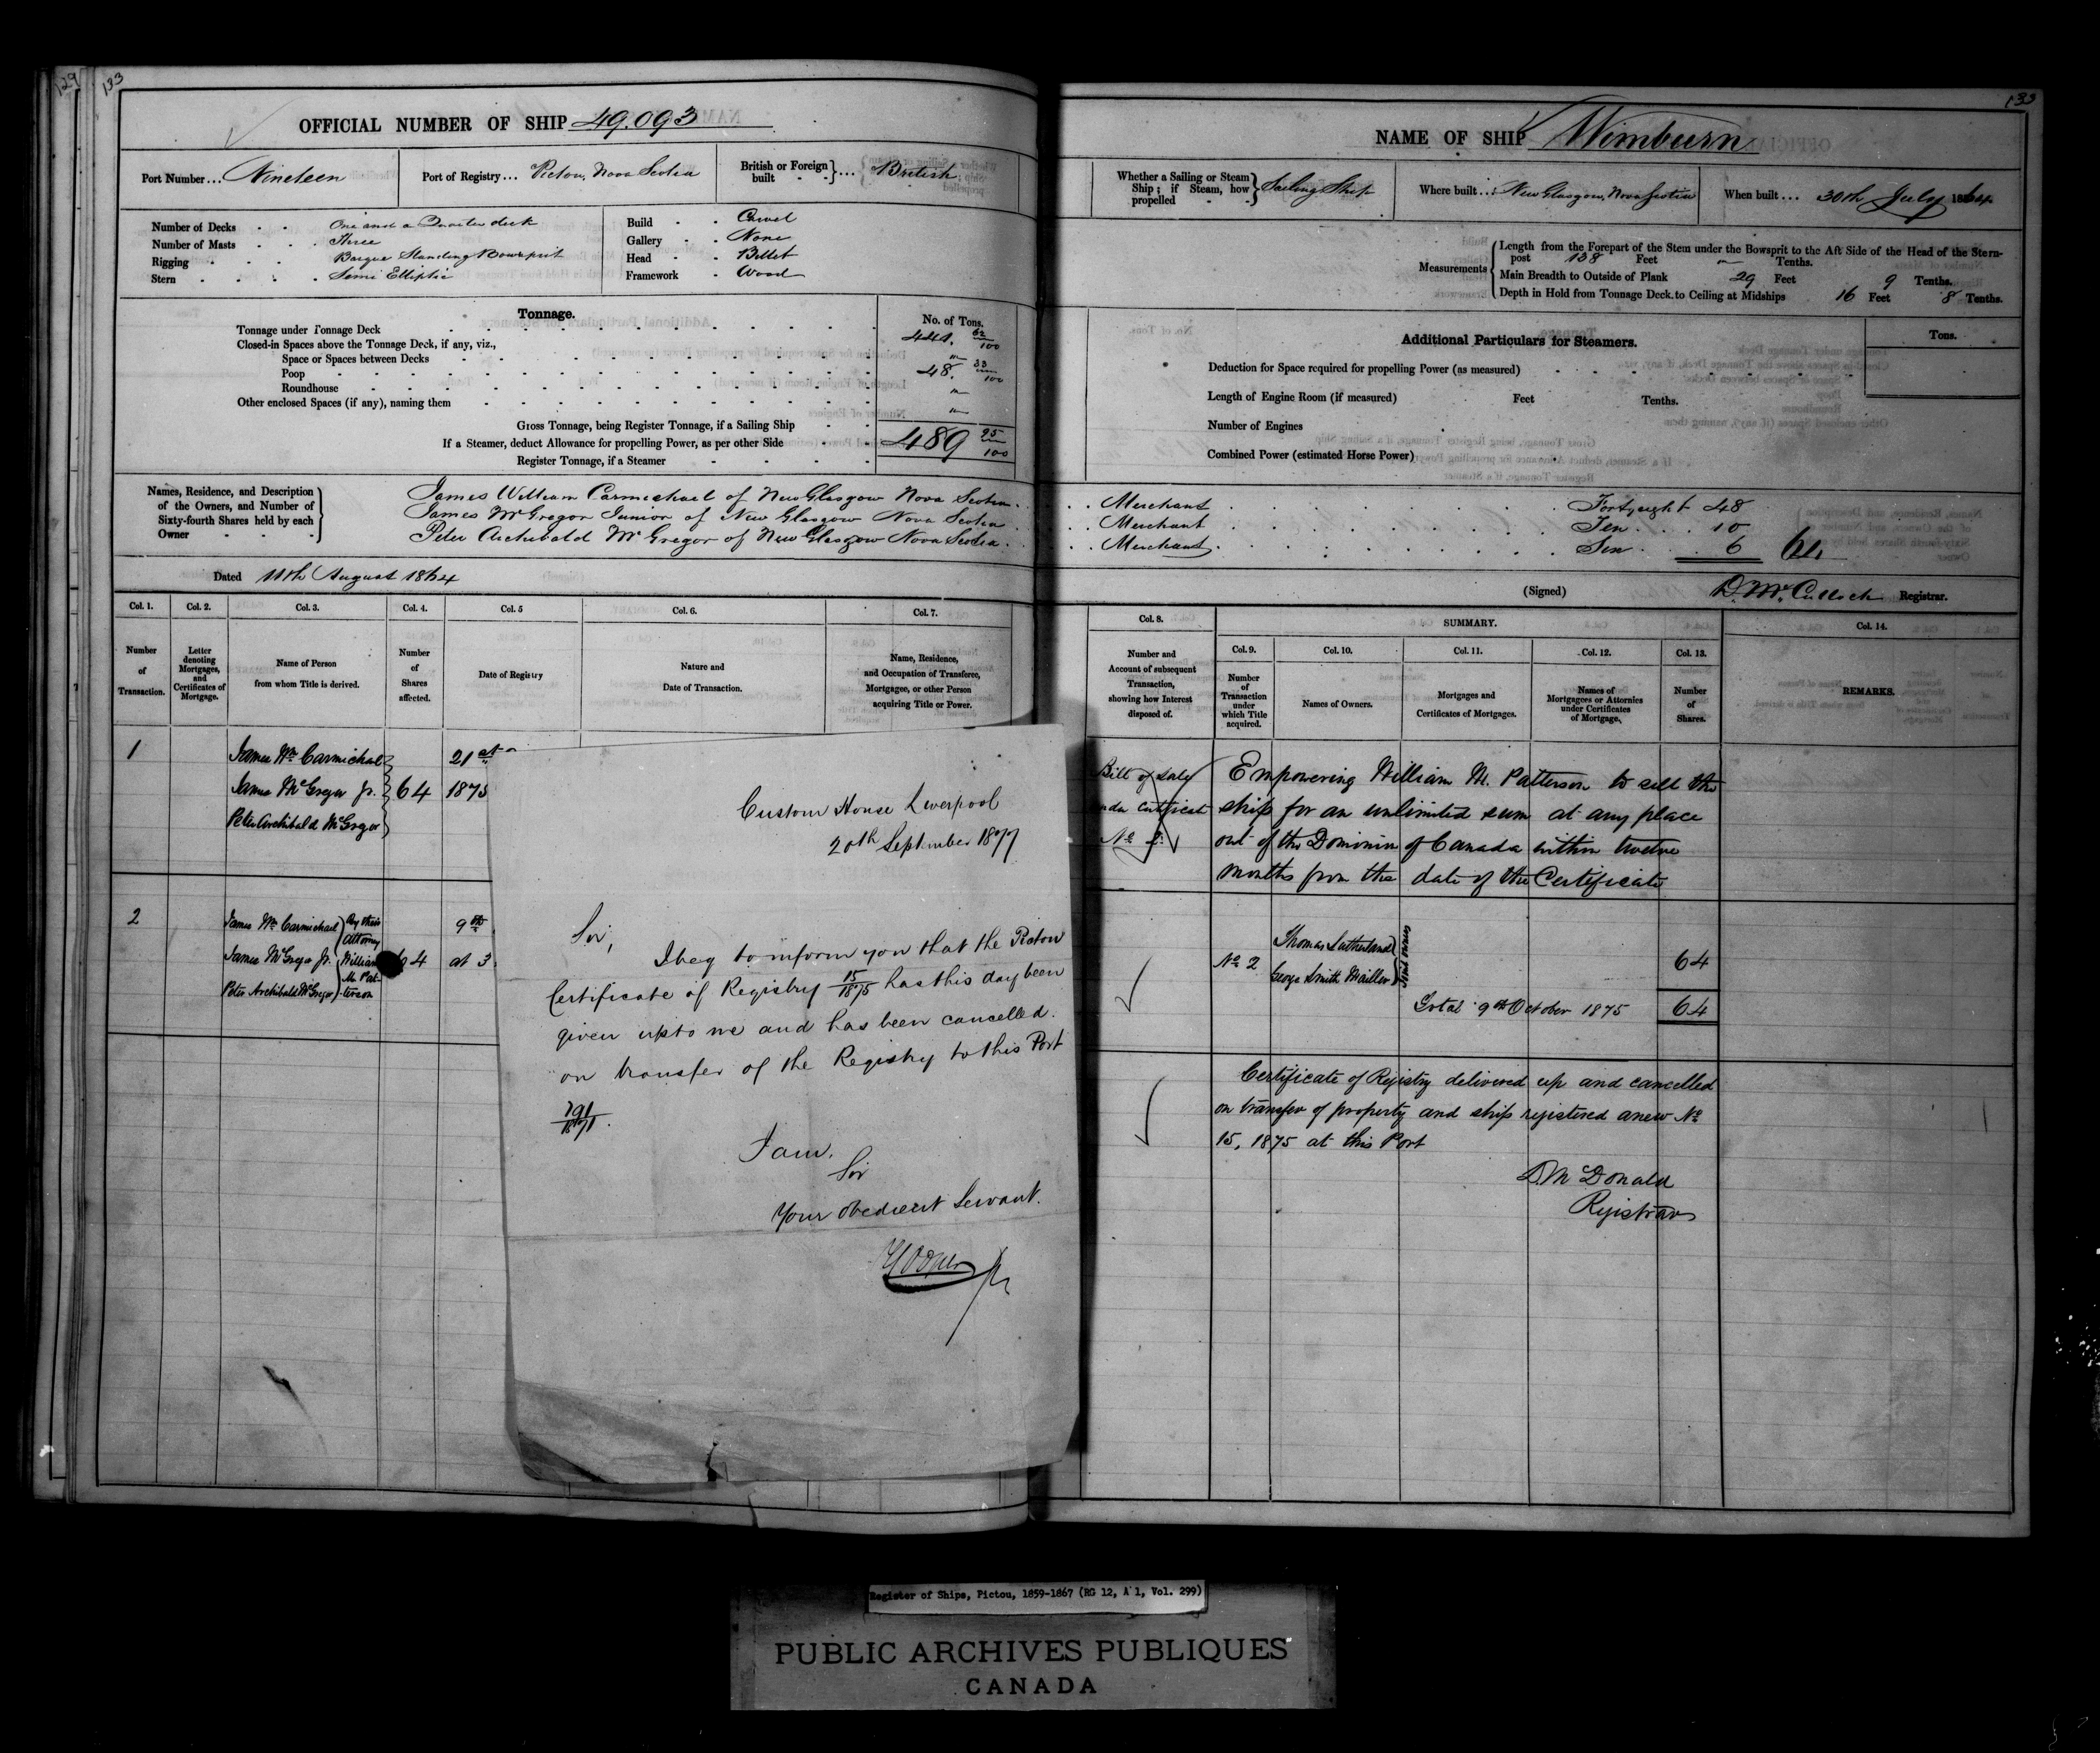 129
133
OFFICIAL NUMBER OF SHIP 49.093
Port Number... Nineteen
Port of Registry... Pictou, Nova Scotia
British or Foreign built - -}... British
Number of Decks - - One and a Quarter deck
Number of Masts - - Three
Rigging - - Barque Standing Bowsprit
Stern - - Semi Elliptic
Build - - Carvel
Gallery - - None
Head - - Billet
Framework - Wood
Tonnage.
No. of Tons.
Tonnage under Tonnage Deck 441. 62/100
Closed-in Spaces above the Tonnage Deck, if any, viz.,
Space or Spaces between Decks "
Poop 48. 33/100
Roundhouse "
Other enclosed Spaces (if any), naming them "
Gross Tonnage, being Register Tonnage, if a Sailing Ship
If a Steamer, deduct Allowance for propelling Power, as per other Side 489 95/100
Register Tonnage, if a Steamer
Names, Residence, and Description of the Owners, and Number of Sixty-fourth Shares held by each Owner
James William Carmichael of New Glasgow Nova Scotia
James McGregor Junior of New Glasgow Nova Scotia
Peter Archibald McGregor of New Glasgow Nova Scotia
Dated 11th August 1864
Col. 1. Col. 2. Col. 3. Col. 4. Col. 5 Col. 6. Col. 7.
Number of Transaction.
Letter denoting Mortgages, and Certificates of Mortgage.
Name of Person from whom Title is derived.
Number of Shares affected.
Date of Registry
Nature and Date of Transaction.
Name, Residence, and Occupation of Transferee, Mortgagee, or other Person acquiring Title or Power.
1
James Wm Carmichael
James McGregor Jr.
Peter Archibald McGregor
64
21st
1875
2
James Wm Carmichael
James McGregor Jr.
Peter Archibald McGregor
By their Attorney William M. Patterson
64
9th
at 3
Custom House Liverpool
20th September 1877
Sir,
I beg to inform you that the Pictou
Certificate of Registry 15/1875 has this day been
given up to me and has been cancelled.
on transfer of the Registry to this Port
I am,
Sir
Your obedient Servant.
133
NAME OF SHIP Wimburn
Whether a Sailing or Steam Ship; if Steam, how propelled - - } Sailing Ship
Where built...: New Glasgow, Nova Scotia
When built... 30th July 1864
Measurements
Length from the Forepart of the Stem under the Bowsprit to the Aft Side of the Head of the Stern-
post 138 Feet " Tenths.
Main Breadth to Outside of Plank 29 Feet 9 Tenths.
Depth in Hold from Tonnage Deck to Ceiling at Midships 16 Feet 8 Tenths.
Additional Particulars for Steamers.
Tons.
Deduction for Space required for propelling Power (as measured)
Length of Engine Room (if measured) Feet Tenths.
Number of Engines
Combined Power (estimated Horse Power)
Merchant Forty eight 48
Merchant Ten 10
Merchant 6 64
(Signed) D. McCulloch Registrar.
Col. 8. SUMMARY. Col. 14.
Col. 9. Col. 10. Col. 11. Col. 12. Col. 13.
Number and Account of subsequent Transaction, showing how Interest disposed of.
Number of Transaction under which Title acquired.
Names of Owners.
Mortgages and Certificates of Mortgages.
Names of Mortgagees or Attornies under Certificates of Mortgage.
Number of Shares.
REMARKS.
Bill of Sale
Certificate
No 2
Empowering William M. Patterson to sell the
ship for an unlimited sum at any place
out of the Dominion of Canada within twelve
months from the date of the Certificate
No 2
Thomas Sutherland
George Smith Mailler
Joint owners
64
Total 9th October 1875 64
Certificate of Registry delivered up and cancelled
on transfer of property and ship registered anew No
15, 1875 at this Port
D. McDonald
Registrar
Register of Ships, Pictou, 1859-1867 (RG 12, A 1, Vol. 299)
PUBLIC ARCHIVES PUBLIQUES
CANADA